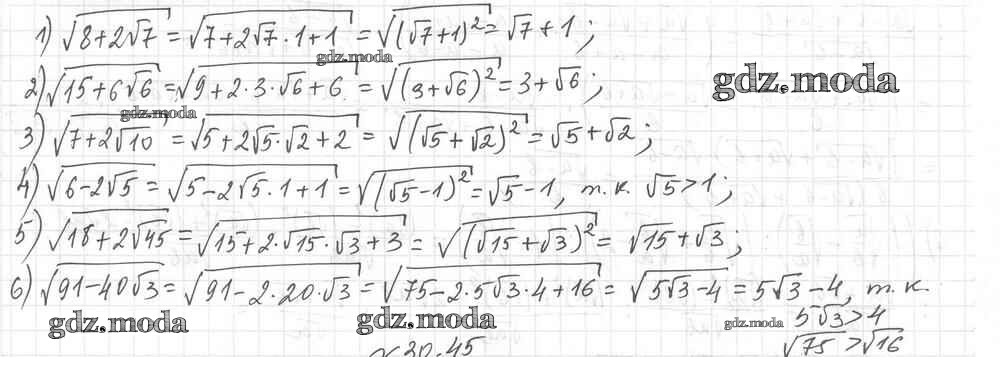 1) √(8+2√7) = √(7+2√7·1+1) = √((√7+1)²) = √7+1;
gdz.moda
2) √(15+6√6) = √(9+2·3·√6+6) = √((3+√6)²) = 3+√6;
gdz.moda
gdz.moda
3) √(7+2√10) = √(5+2√5·√2+2) = √((√5+√2)²) = √5+√2;
4) √(6-2√5) = √(5-2√5·1+1) = √((√5-1)²) = √5-1, т.к. √5>1;
5) √(18+2√45) = √(15+2·√15·√3+3) = √((√15+√3)²) = √15+√3;
6) √(91-40√3) = √(91-2·20·√3) = √(75-2·5√3·4+16) = √(5√3-4) = 5√3-4, т.к.
gdz.moda gdz.moda gdz.moda 5√3>4
√75 > √16